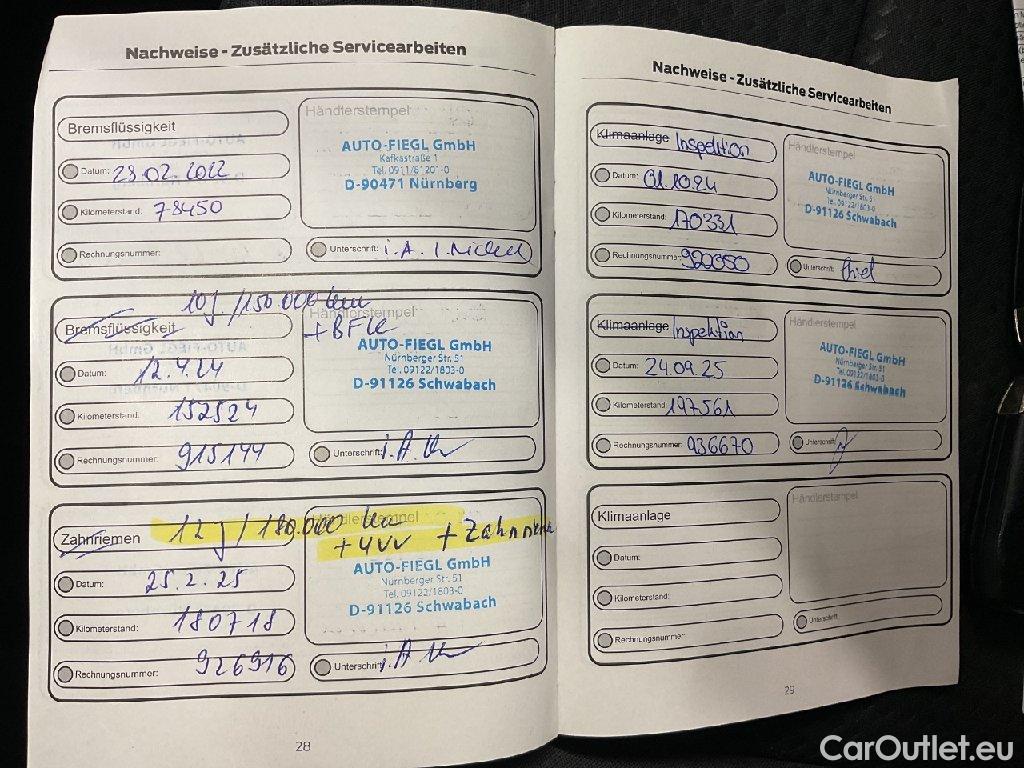 Nachweise - Zusätzliche Servicearbeiten
Bremsflüssigkeit
Händlerstempel
AUTO-FIEGL GmbH
Kafkastraße 1
Tel. 0911/81201-0
D-90471 Nürnberg
Datum: 23.02.2022
Kilometerstand: 78450
Rechnungsnummer:
Unterschrift: i.A.
10J/150.000 km
+ BFW
Bremsflüssigkeit
Händlerstempel
AUTO-FIEGL GmbH
Nürnberger Str. 51
Te. 09122/1803-0
D-91126 Schwabach
Datum: 12.4.24
Kilometerstand: 152524
Rechnungsnummer: 915144
Unterschrift: i.A.
Zahnriemen
12J/180.000 km
Händlerstempel
+ 4VV + Zahnriemen
AUTO-FIEGL GmbH
Nürnberger Str. 51
Tel. 09122/1803-0
D-91126 Schwabach
Datum: 25.2.25
Kilometerstand: 180718
Rechnungsnummer: 926916
Unterschrift: i.A.
28
Nachweise - Zusätzliche Servicearbeiten
Klimaanlage Inspektion
Händlerstempel
AUTO-FIEGL GmbH
Nürnberger Str. 51
Te. 09122/1803-0
D-91126 Schwabach
Datum: 01.10.24
Kilometerstand: 170331
Rechnungsnummer: 922050
Unterschrift:
Klimaanlage Inspektion
Händlerstempel
AUTO-FIEGL GmbH
Nürnberger Str. 51
Tel. 09122/1803-0
D-91126 Schwabach
Datum: 24.09.25
Kilometerstand: 197561
Rechnungsnummer: 936670
Unterschrift:
Klimaanlage
Händlerstempel
Datum:
Kilometerstand:
Rechnungsnummer:
Unterschrift:
29
CarOutlet.eu